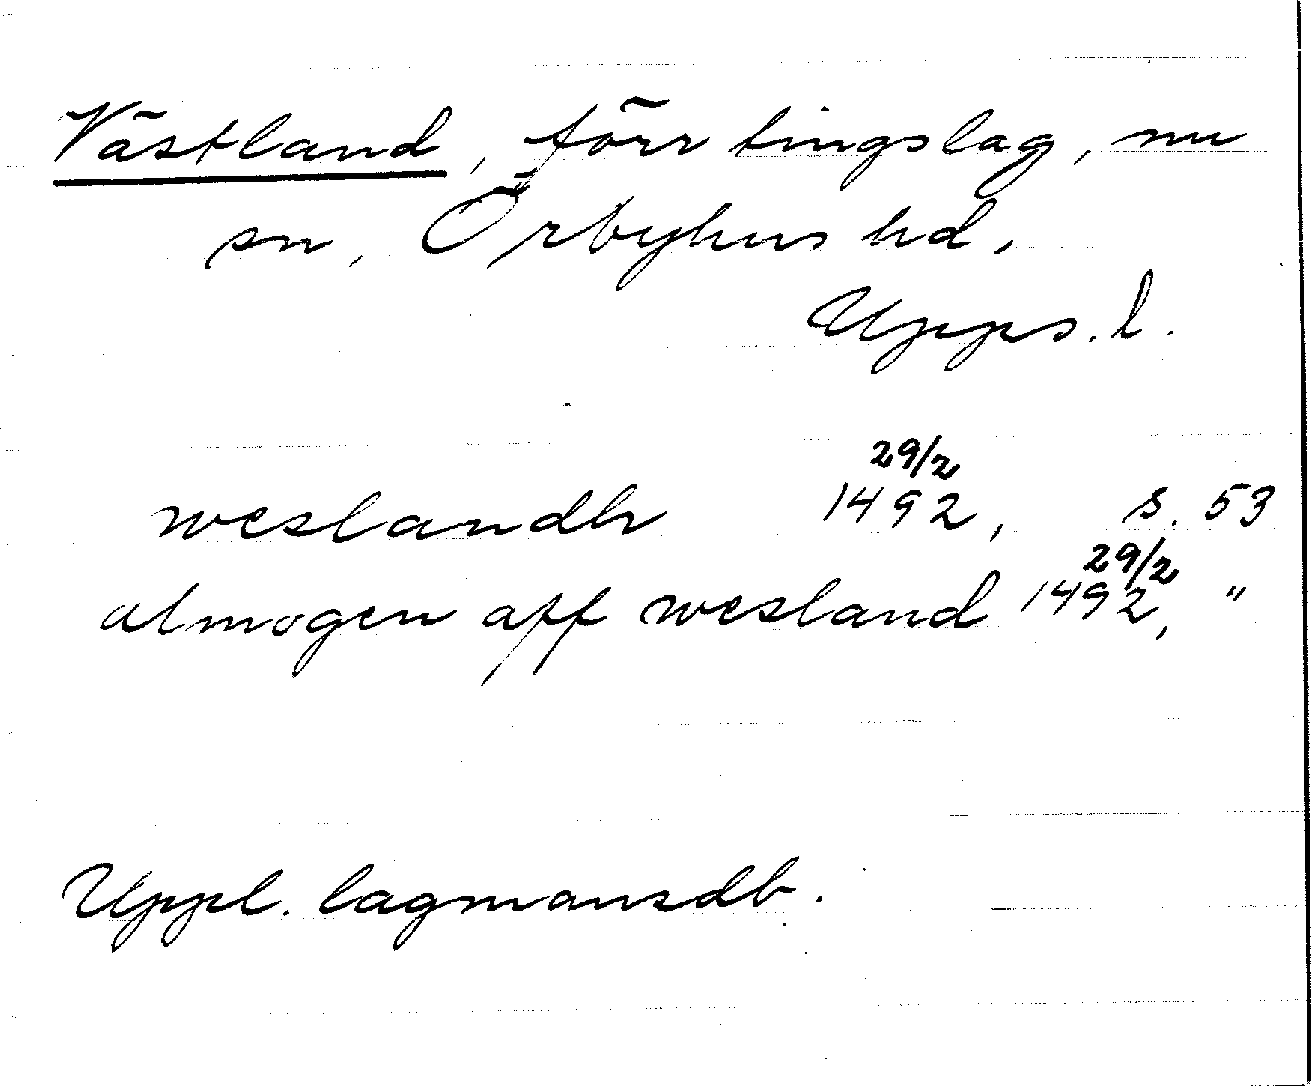 Västland, förr tingslag, nu
sn, Örbyhus hd,
Upps. l.
weslandh 29/2 1492, s. 53
almogen aff wesland 29/2 1492, "
Uppl. lagmansdb.